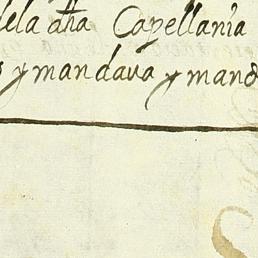 dela dha Capellania
y mandava y mando